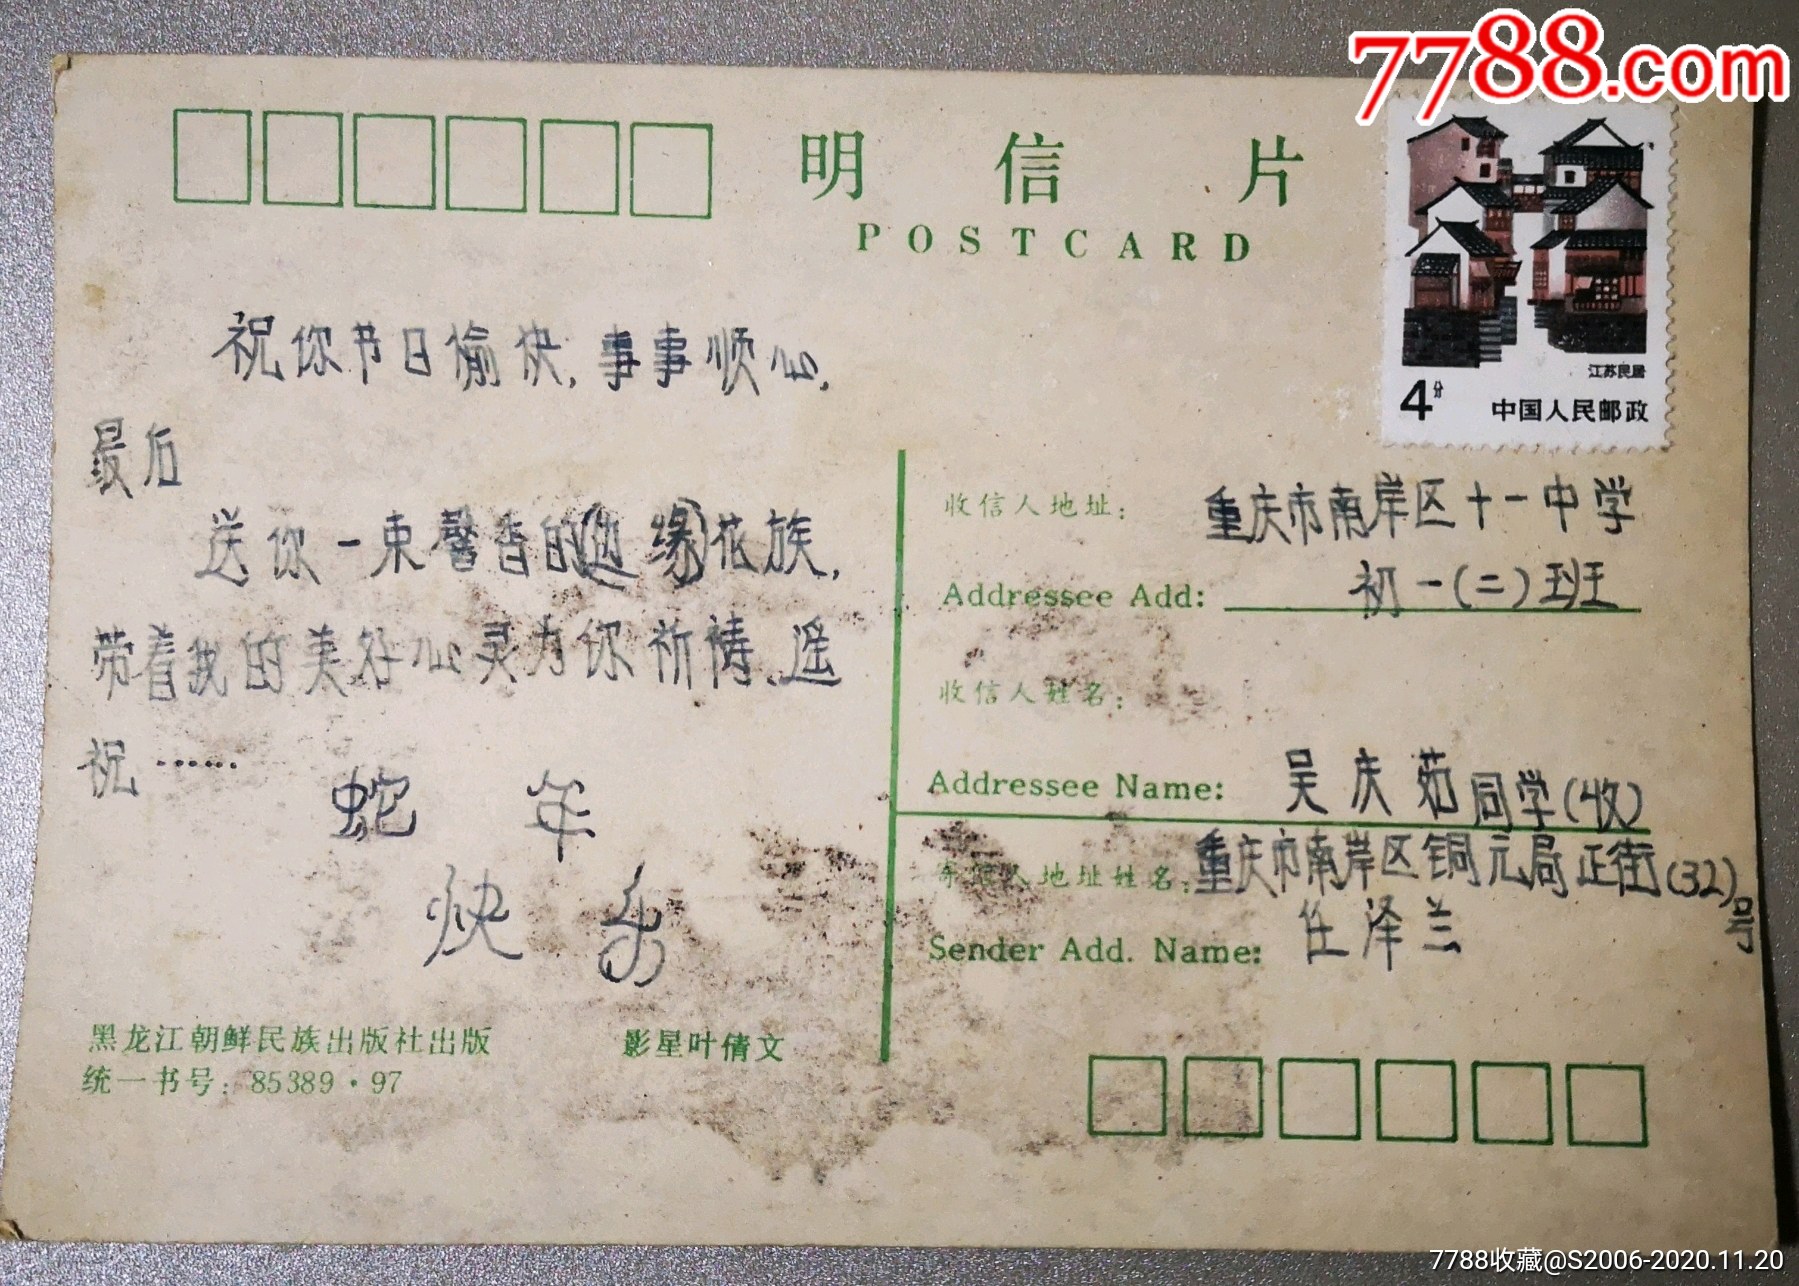 7788.com
明信片
POSTCARD
江苏民居
4分 中国人民邮政
祝你节日愉快,事事顺心.
最后
送你一束馨香的(边缘)花族,
带着我的美好心灵为你祈祷.遥
祝······
蛇年
快乐
收信人地址: 重庆市南岸区十一中学
Addressee Add: 初一(二)班
收信人姓名:
Addressee Name: 吴庆茹同学(收)
寄信人地址姓名: 重庆市南岸区铜元局正街(32)号
Sender Add. Name: 任泽兰
黑龙江朝鲜民族出版社出版 影星叶倩文
统一书号: 85389·97
7788收藏@S2006-2020.11.20